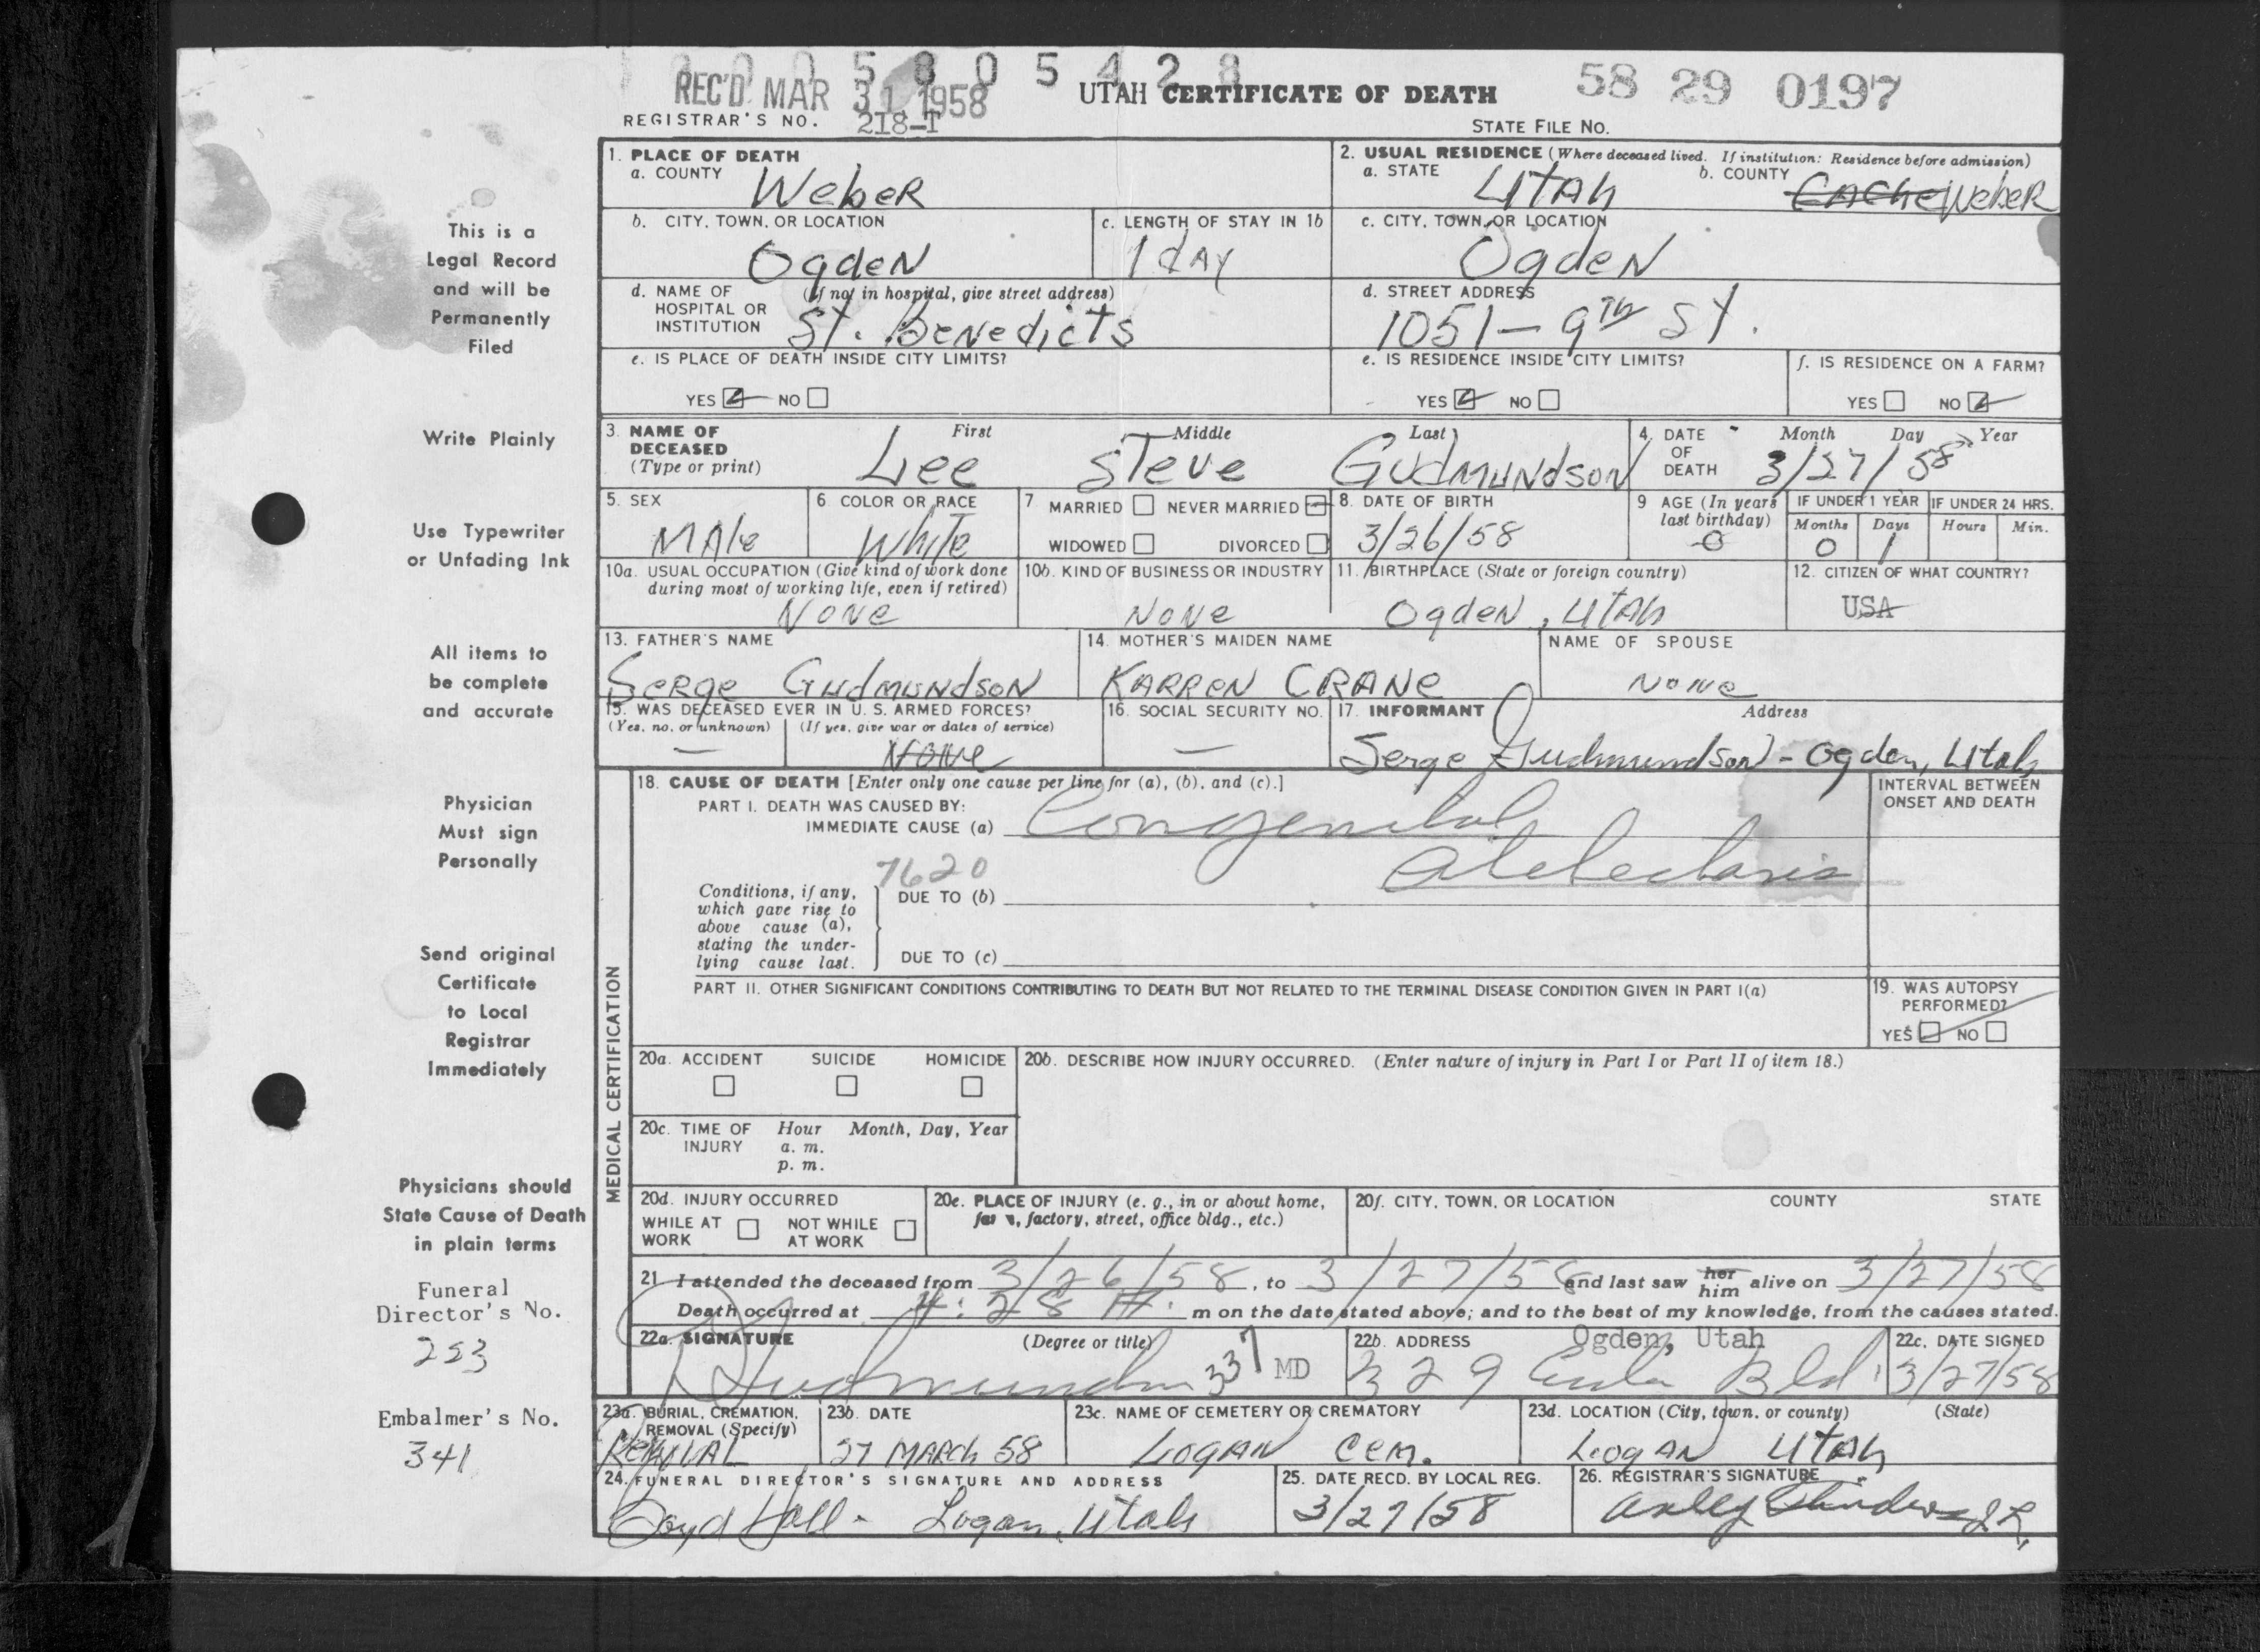 REC'D MAR 31 1958
0 5 8 0 5 4 2 8
UTAH CERTIFICATE OF DEATH
58 29 0197
REGISTRAR'S NO. 218-T
STATE FILE NO.
1. PLACE OF DEATH
a. COUNTY Weber
2. USUAL RESIDENCE (Where deceased lived. If institution: Residence before admission)
a. STATE Utah b. COUNTY Cache Weber
b. CITY, TOWN, OR LOCATION Ogden
c. LENGTH OF STAY IN 1b 1 day
c. CITY, TOWN, OR LOCATION Ogden
d. NAME OF HOSPITAL OR INSTITUTION (If not in hospital, give street address) St. Benedicts
d. STREET ADDRESS 1051 - 9th St.
e. IS PLACE OF DEATH INSIDE CITY LIMITS?
YES NO
e. IS RESIDENCE INSIDE CITY LIMITS?
YES NO
f. IS RESIDENCE ON A FARM?
YES NO
3. NAME OF DECEASED (Type or print) First Middle Last
Lee Steve Gudmundson
4. DATE OF DEATH Month Day Year
3/27/58
5. SEX Male
6. COLOR OR RACE White
7 MARRIED NEVER MARRIED
WIDOWED DIVORCED
8. DATE OF BIRTH 3/26/58
9 AGE (In years last birthday) 0
IF UNDER 1 YEAR Months 0 Days 1
IF UNDER 24 HRS. Hours Min.
10a. USUAL OCCUPATION (Give kind of work done during most of working life, even if retired) None
10b. KIND OF BUSINESS OR INDUSTRY None
11. BIRTHPLACE (State or foreign country) Ogden, Utah
12. CITIZEN OF WHAT COUNTRY? USA
13. FATHER'S NAME Serge Gudmundson
14. MOTHER'S MAIDEN NAME Karren Crane
NAME OF SPOUSE None
15. WAS DECEASED EVER IN U. S. ARMED FORCES?
(Yes, no, or unknown) — (If yes, give war or dates of service) None
16. SOCIAL SECURITY NO. —
17. INFORMANT Address
Serge Gudmundson - Ogden, Utah
MEDICAL CERTIFICATION
18. CAUSE OF DEATH [Enter only one cause per line for (a), (b), and (c).]
INTERVAL BETWEEN ONSET AND DEATH
PART I. DEATH WAS CAUSED BY:
IMMEDIATE CAUSE (a) Congenital
Atelectasis
7620
Conditions, if any, which gave rise to above cause (a), stating the underlying cause last.
DUE TO (b)
DUE TO (c)
PART II. OTHER SIGNIFICANT CONDITIONS CONTRIBUTING TO DEATH BUT NOT RELATED TO THE TERMINAL DISEASE CONDITION GIVEN IN PART I(a)
19. WAS AUTOPSY PERFORMED?
YES NO
20a. ACCIDENT SUICIDE HOMICIDE
20b. DESCRIBE HOW INJURY OCCURRED. (Enter nature of injury in Part I or Part II of item 18.)
20c. TIME OF INJURY Hour Month, Day, Year
a. m.
p. m.
20d. INJURY OCCURRED
WHILE AT WORK NOT WHILE AT WORK
20e. PLACE OF INJURY (e. g., in or about home, farm, factory, street, office bldg., etc.)
20f. CITY, TOWN, OR LOCATION COUNTY STATE
21 I attended the deceased from 3/26/58, to 3/27/58 and last saw her him alive on 3/27/58
Death occurred at 4:28 m on the date stated above; and to the best of my knowledge, from the causes stated.
22a. SIGNATURE (Degree or title) 337 MD
22b. ADDRESS Ogden, Utah
329 Bld.
22c. DATE SIGNED 3/27/58
23a. BURIAL, CREMATION, REMOVAL (Specify) Removal
23b. DATE 27 March 58
23c. NAME OF CEMETERY OR CREMATORY Logan Cem.
23d. LOCATION (City, town, or county) (State)
Logan Utah
24. FUNERAL DIRECTOR'S SIGNATURE AND ADDRESS
Boyd Hall - Logan, Utah
25. DATE RECD. BY LOCAL REG. 3/27/58
26. REGISTRAR'S SIGNATURE
This is a
Legal Record
and will be
Permanently
Filed
Write Plainly
Use Typewriter
or Unfading Ink
All items to
be complete
and accurate
Physician
Must sign
Personally
Send original
Certificate
to Local
Registrar
Immediately
Physicians should
State Cause of Death
in plain terms
Funeral
Director's No.
253
Embalmer's No.
341